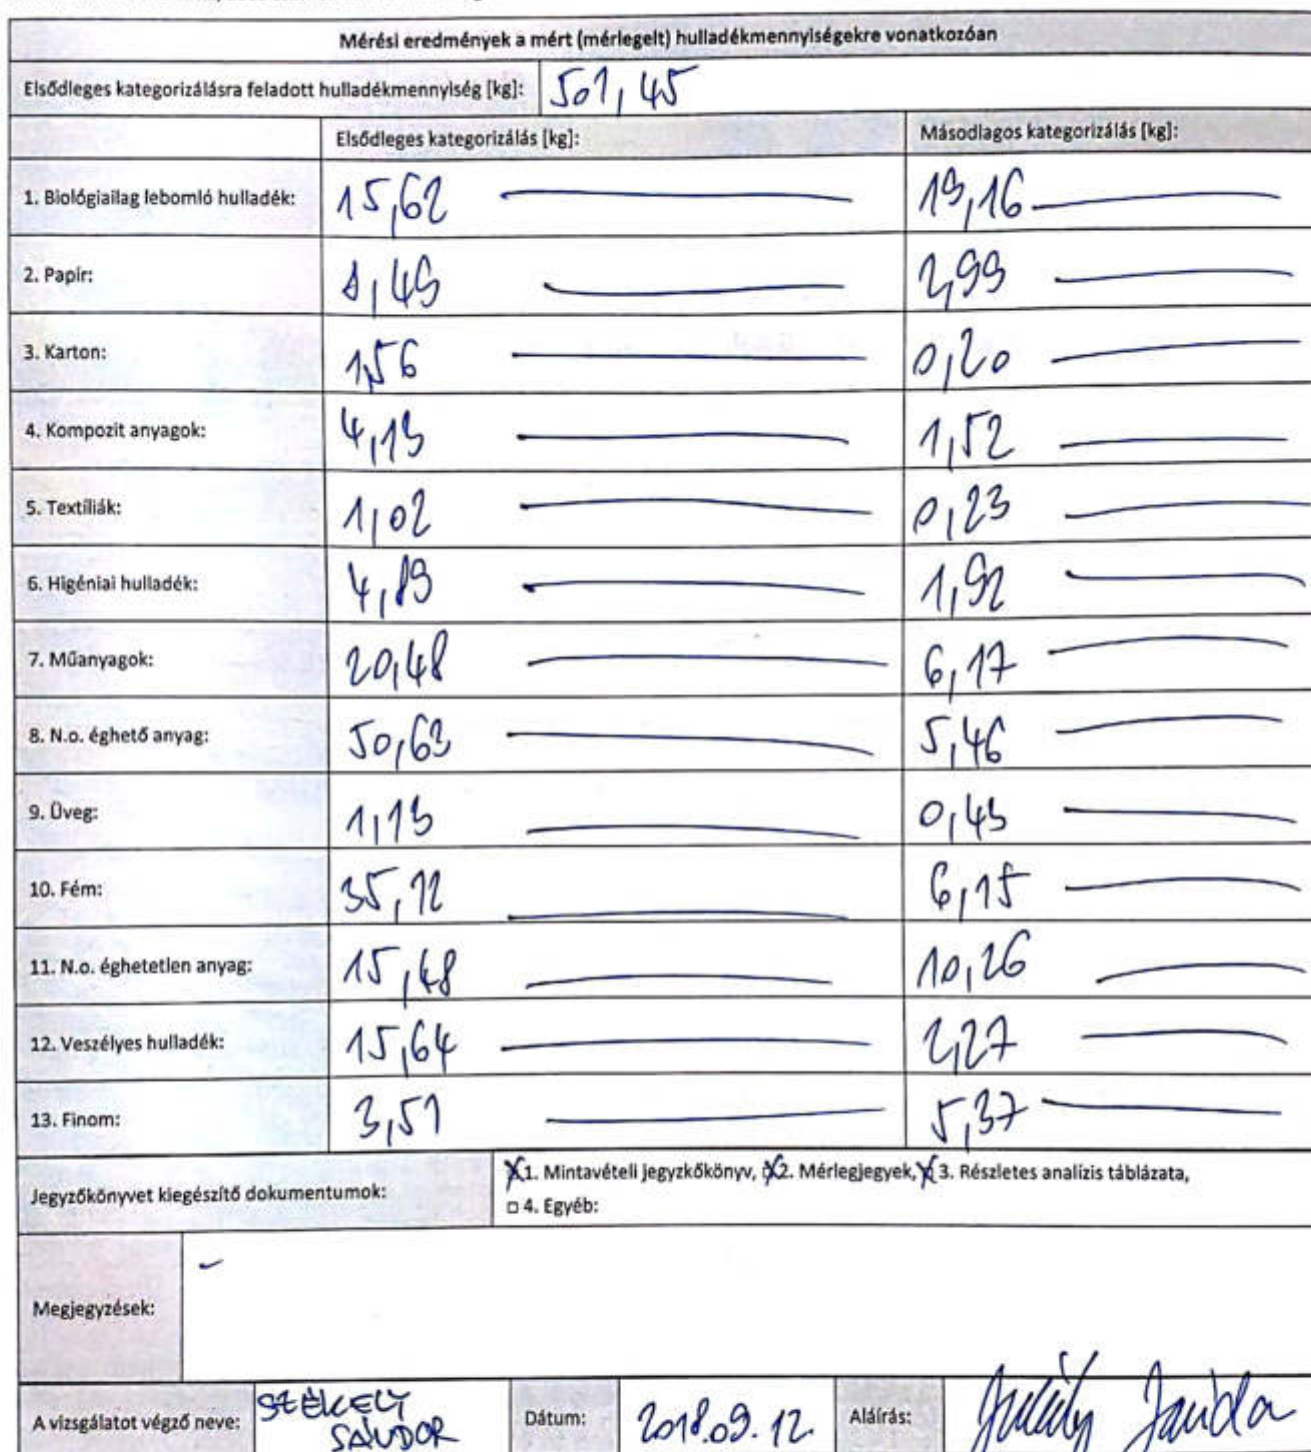 Mérési eredmények a mért (mérlegelt) hulladékmennyiségekre vonatkozóan
Elsődleges kategorizálásra feladott hulladékmennyiség [kg]: 501,45
Elsődleges kategorizálás [kg]: Másodlagos kategorizálás [kg]:
1. Biológiailag lebomló hulladék: 15,62 19,16
2. Papír: 8,49 2,99
3. Karton: 1,56 0,20
4. Kompozit anyagok: 4,19 1,52
5. Textíliák: 1,02 0,23
6. Higéniai hulladék: 4,89 1,92
7. Műanyagok: 20,48 6,17
8. N.o. éghető anyag: 50,63 5,46
9. Üveg: 1,19 0,49
10. Fém: 35,12 6,15
11. N.o. éghetetlen anyag: 15,48 10,26
12. Veszélyes hulladék: 15,64 2,27
13. Finom: 3,51 5,37
Jegyzőkönyvet kiegészítő dokumentumok: 1. Mintavételi jegyzkőkönyv, 2. Mérlegjegyek, 3. Részletes analízis táblázata,
□ 4. Egyéb:
Megjegyzések: -
A vizsgálatot végző neve: SZÉKELY SÁNDOR Dátum: 2018.09.12. Aláírás: